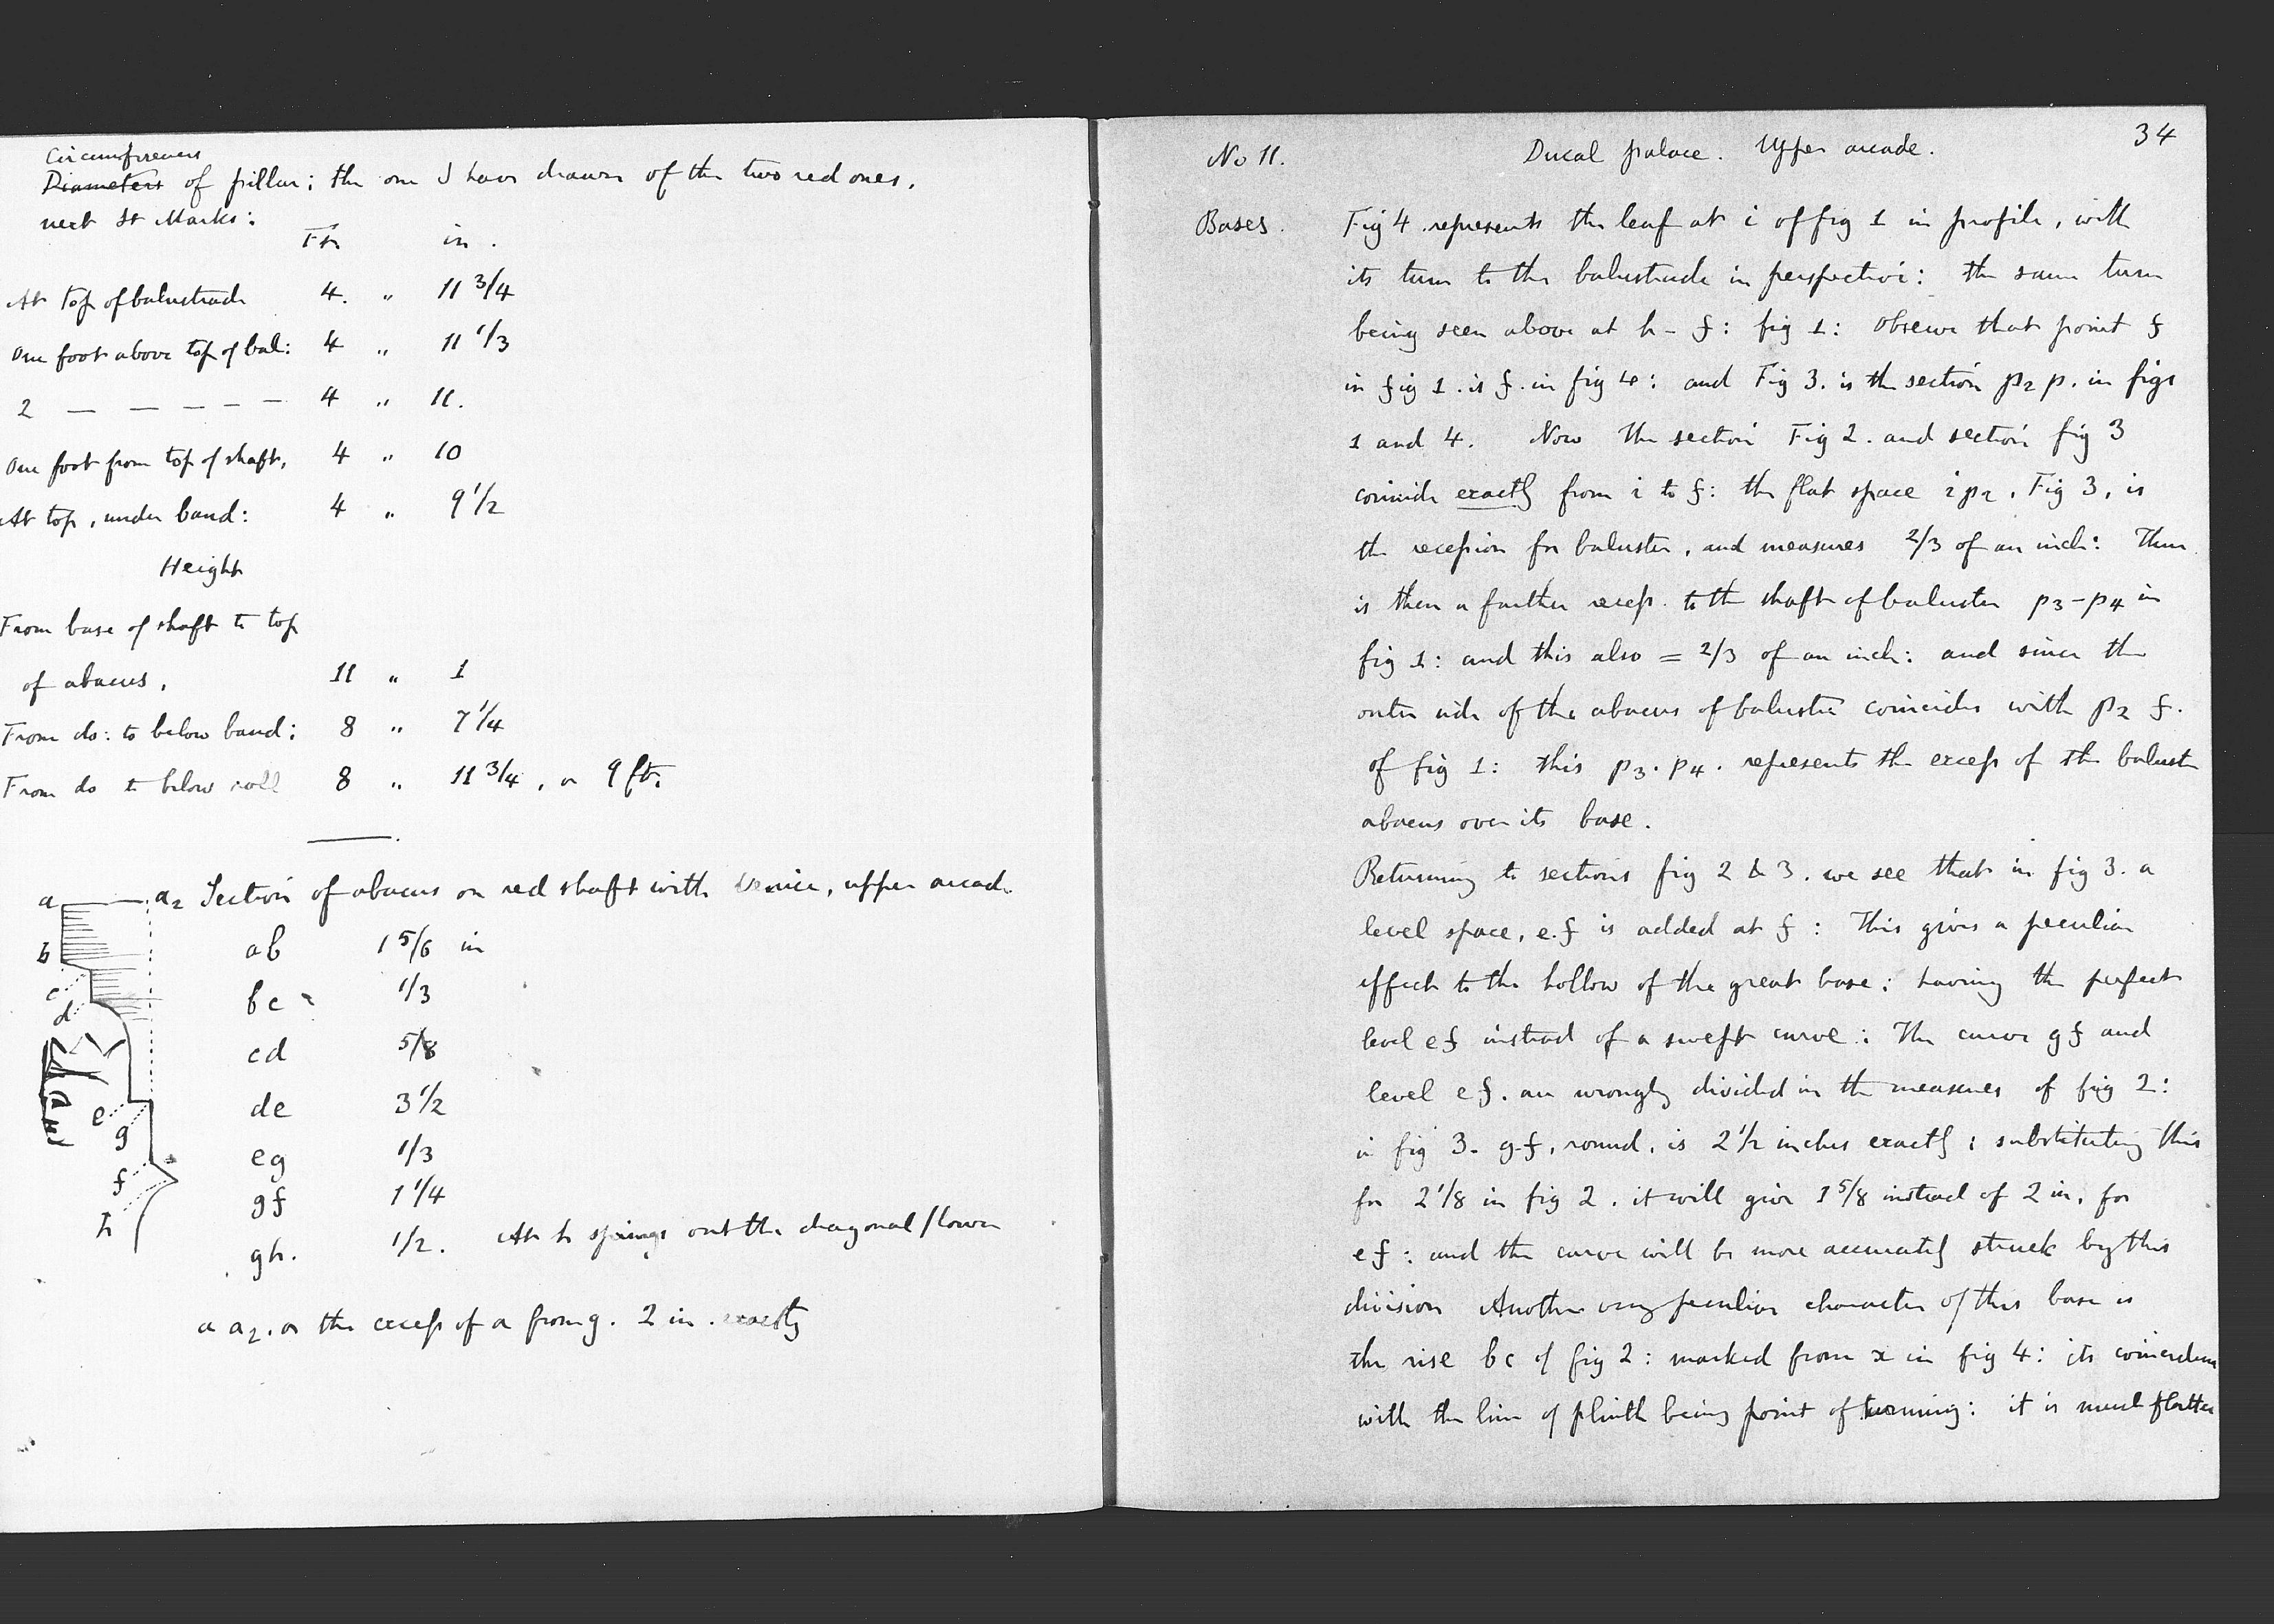 Circumferences
Diameters of pillar; the one I have drawn of the two red ones,
next St Marks:
Ft in.
At top of balustrade 4. " 11 3/4
One foot above top of bal: 4 " 11 1/3
2 — — — — — 4 " 11.
One foot from top of shaft, 4 " 10
At top, under band: 4 " 9 1/2
Height
From base of shaft to top
of abacus, 11 " 1
From do: to below band; 8 " 7 1/4
From do to below roll 8 " 11 3/4, or 9 ft.
a a2 Section of abacus on red shaft with Venice, upper arcade.
b ab 1 5/6 in
c bc 1/3
d cd 5/8
de 3 1/2
e g eg 1/3
f gf 1 1/4
h gh. 1/2. At h springs out the diagonal flower
a a2. or the excess of a from g. 2 in. exactly
No 11. Ducal palace. Upper arcade. 34
Bases. Fig 4 represents the leaf at i of fig 1 in profile, with
its turn to the balustrade in perspective: the same turn
being seen above at h - f: fig 1: observe that point f
in fig 1. is f. in fig 4: and Fig 3. is the section p2 p. in figs
1 and 4. Now the section Fig 2. and section fig 3
coincide exactly from i to f: the flat space i p2, Fig 3, is
the recession for baluster, and measures 2/3 of an inch: There
is then a farther recess. to the shaft of baluster p3-p4 in
fig 1: and this also = 2/3 of an inch: and since the
outer side of the abacus of baluster coincides with p2 f.
of fig 1: this p3. p4. represents the excess of the balust
abacus over its base.
Returning to sections fig 2 & 3. we see that in fig 3. a
level space, e.f is added at f: This gives a peculiar
effect to the hollow of the great base; having the perfect
level ef instead of a swept curve: The curve gf and
level ef. are wrongly divided in the measures of fig 2:
in fig 3. g.f, round, is 2 1/2 inches exactly; substituting this
for 2 1/8 in fig 2. it will give 1 5/8 instead of 2 in. for
ef: and the curve will be more accurately struck by this
division Another very peculiar character of this base is
the rise bc of fig 2: marked from x in fig 4: its coincidence
with the line of plinth being point of turning: it is much flatter